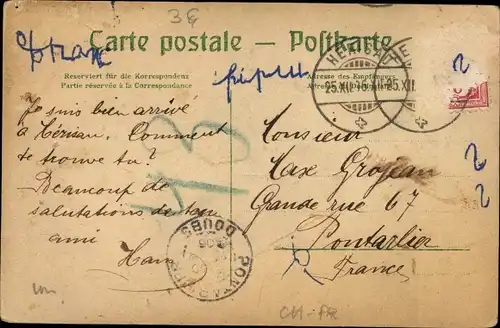 3€
Carte postale — Postkarte
Reserviert für die Korrespondenz
Partie réservée à la Correspondance
Adresse des Empfängers
25.XII.
25.XII.
2
2
2
Je suis bien arrivé
à Herisau. Comment
te trouve tu?
Beaucoup de
salutations de ton
ami
Hans
Monsieur
Max Grosjean
Grande rue 67
Pontarlier
France
PONTARLIER
DOUBS
CH-FR